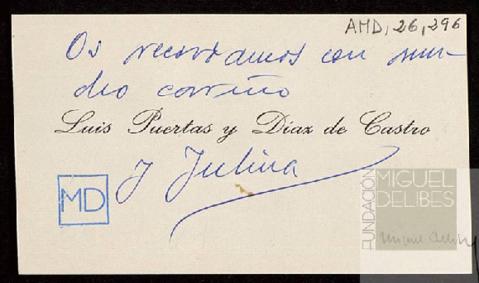 AMD, 26, 296
Os recordamos con mu-
cho cariño
Luis Puertas y Díaz de Castro
y Julina
MD
FUNDACIÓN
MIGUEL
DELIBES